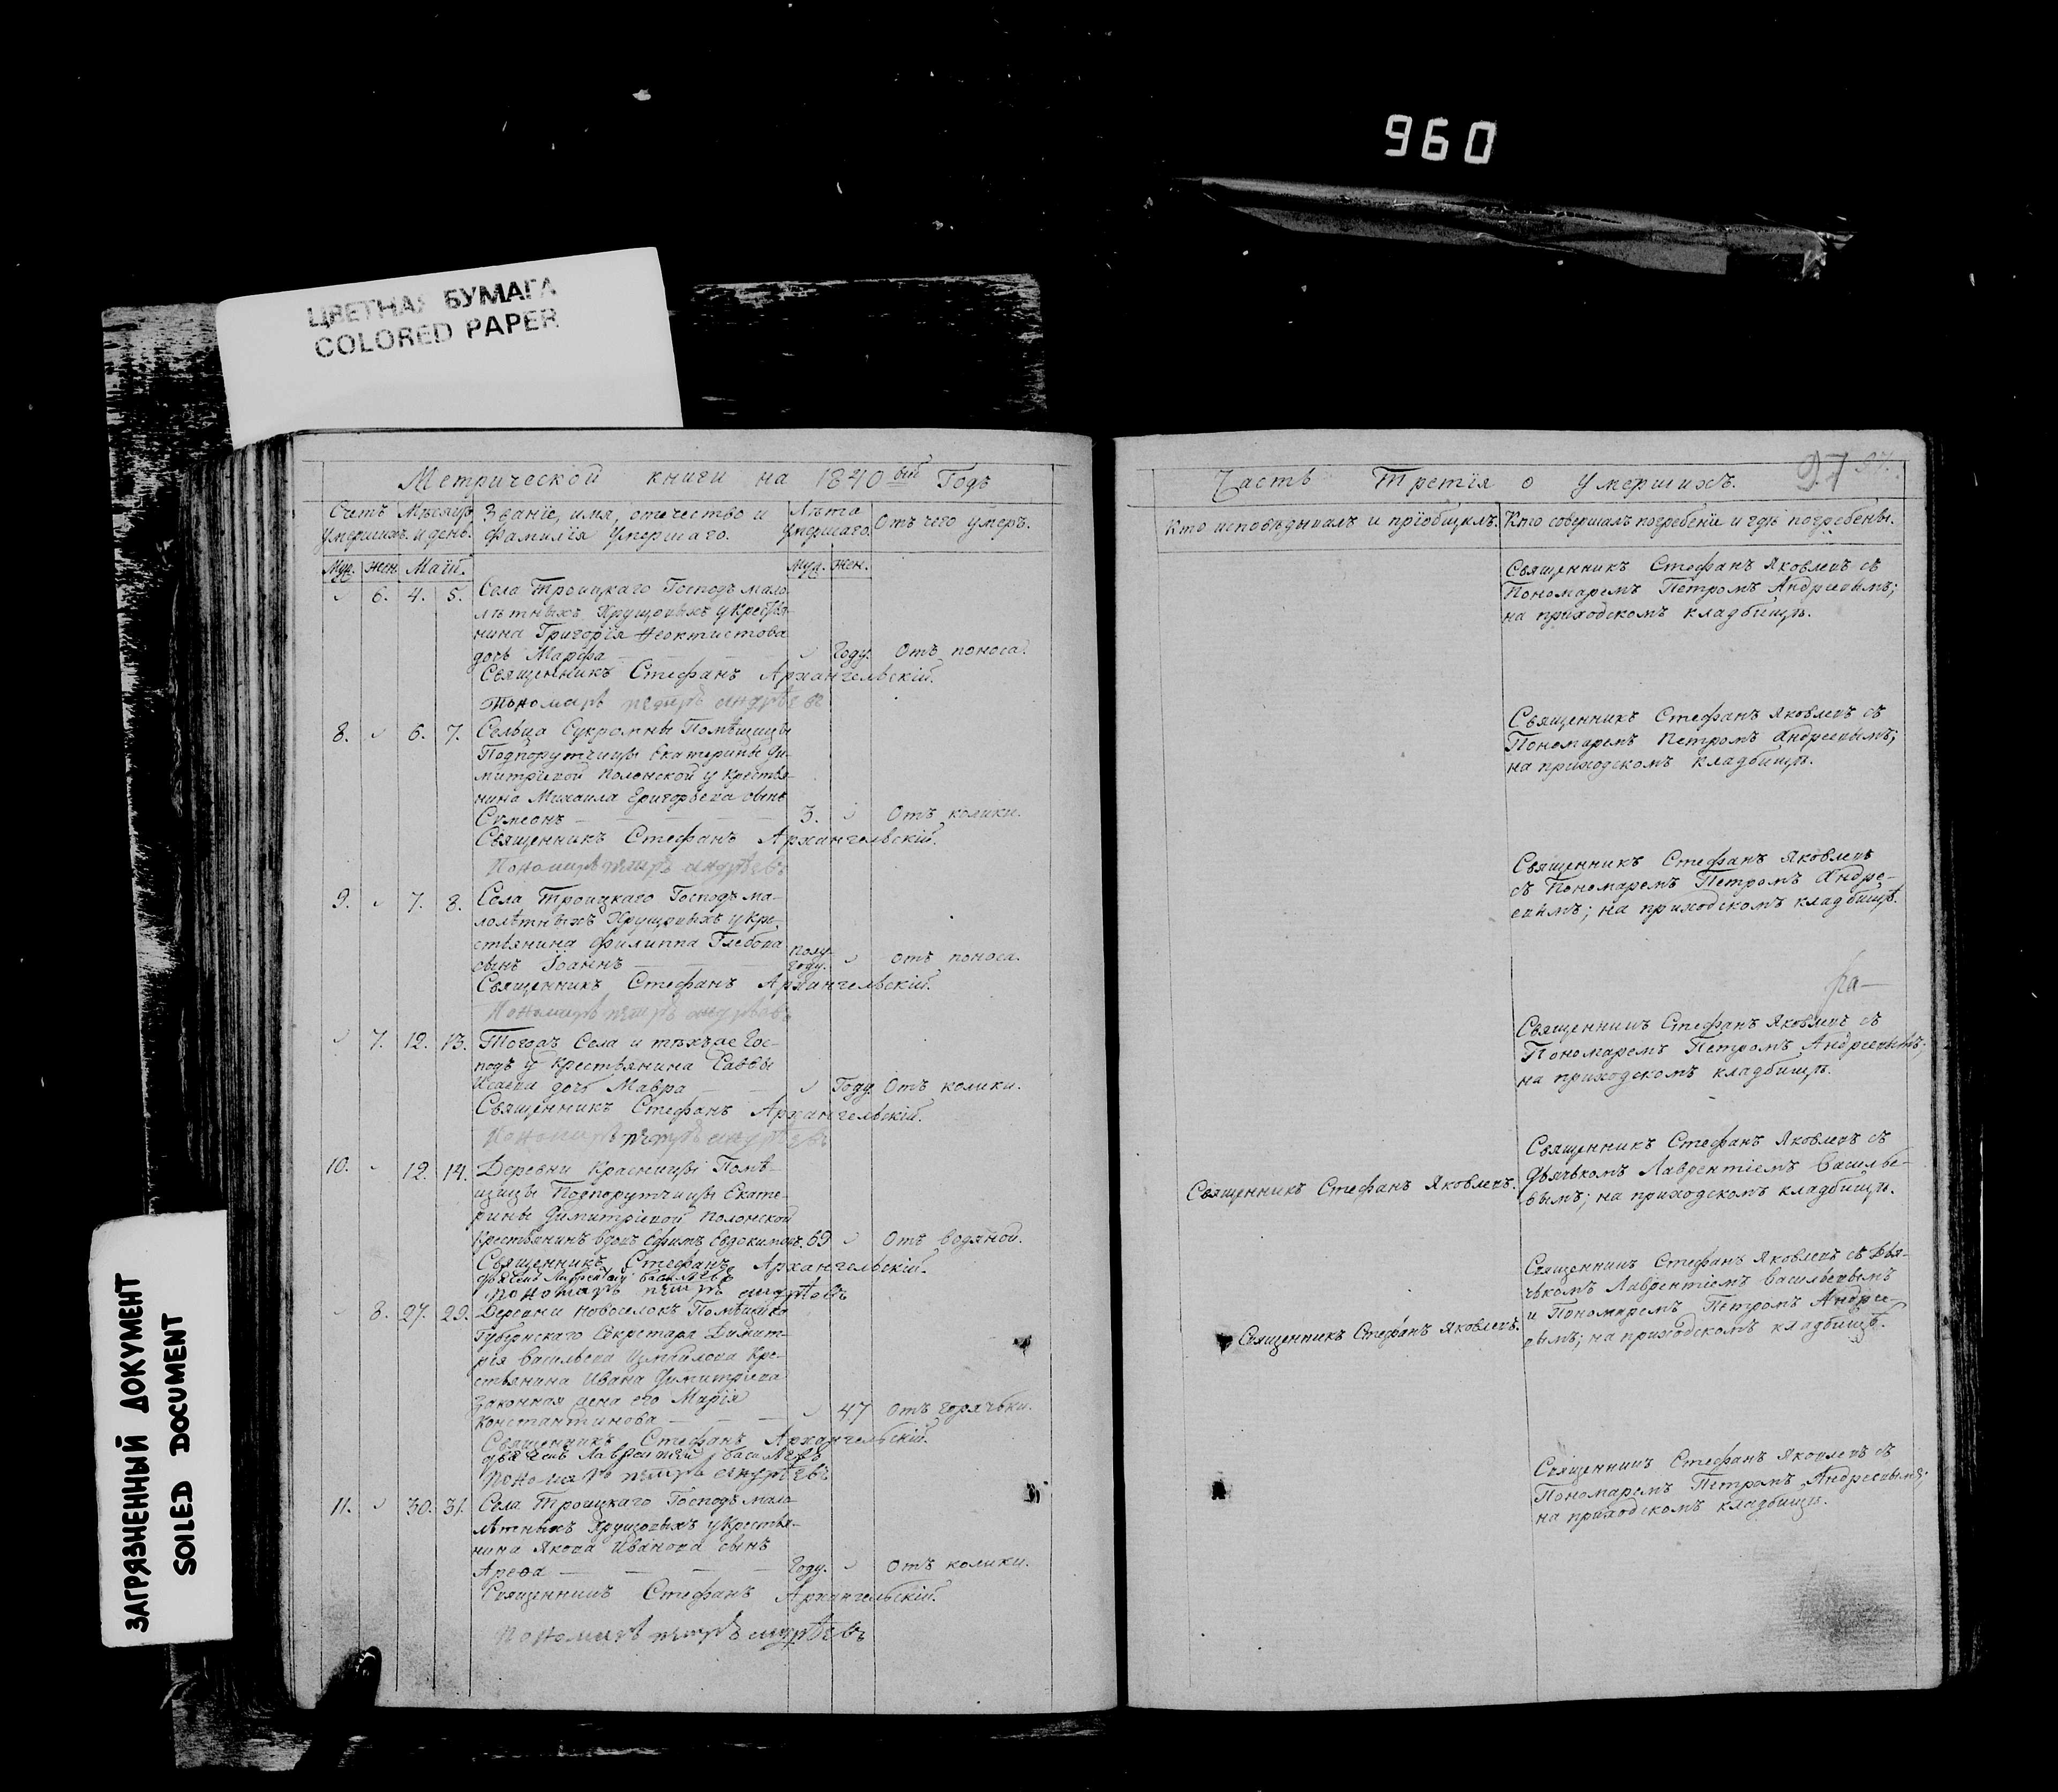 960
ЦВЕТНАЯ БУМАГА
COLORED PAPER
ЗАГРЯЗНЕННЫЙ ДОКУМЕНТ
SOILED DOCUMENT
Метрической книги на 1840вый Годъ
Счетъ Умершихъ. Мѣсяцъ и день. Званіе, имя, отечество и фамилія Умершаго. Лѣта Умершаго. Отъ чего умеръ.
Муж. жен. Маій. Муж. жен.
6. 4. 5. Села Троицкаго Господъ мало
лѣтныхъ Хрущовыхъ у Крестья
нина Григорія Феоктистова
дочь Марфа Году. Отъ поноса.
Священникъ Стефанъ Архангельскій.
Пономарь петръ андрѣевъ
8. 6. 7. Сельца Сукромны Помѣщицы
Подпорутчицы Екатерины Ди-
митріевой Полонской у Крестья-
нина Михаила Григорьева сынъ
Сѵмеонъ 3. Отъ колики.
Священникъ Стефанъ Архангельскій.
Пономарь петръ андрѣевъ
9. 7. 8. Села Троицкаго Господъ ма-
лолѣтныхъ Хрущовыхъ у Кре-
стьянина Филиппа Глебова
сынъ Іоаннъ Полу-году. отъ поноса.
Священникъ Стефанъ Архангельскій.
Пономарь петръ андрѣевъ
7. 12. 13. Тогожъ Села и тѣхъже Гос-
подъ у Крестьянина Саввы
Исаева дочь Мавра Году. Отъ колики.
Священникъ Стефанъ Архангельскій.
Пономарь петръ андрѣевъ
10. 12. 14. Деревни Красницы Помѣ-
щицы Подпорутчицы Екате-
рины Димитріевой Полонской
Крестьянинъ вдовъ Ефимъ Евдокимовъ. 69 Отъ водяной.
Священникъ Стефанъ Архангельскій.
дьячекъ Лаврентій Васильевъ
Пономарь петръ андрѣевъ
8. 27. 29. Деревни Новоселокъ Помѣщика
Губернскаго Секретаря Димит-
рія Васильева Измайлова Кре-
стьянина Ивана Димитріева
законная жена его Марія
Константинова 47 отъ горячьки.
Священникъ Стефанъ Архангельскій.
дьячекъ Лаврентій Васильевъ
Пономарь петръ андрѣевъ
11. 30. 31. Села Троицкаго Господъ мало
лѣтныхъ Хрущовыхъ у Крестья-
нина Якова Иванова сынъ
Арефа Году. Отъ колики.
Священникъ Стефанъ Архангельскій.
Пономарь петръ андрѣевъ
Часть Третія о умершихъ. 97
Кто исповѣдывалъ и пріобщилъ. Кто совершалъ погребеніе и гдѣ погребены.
Священникъ Стефанъ Яковлевъ съ
Пономаремъ Петромъ Андреевымъ;
на приходскомъ кладбищѣ.
Священникъ Стефанъ Яковлевъ съ
Пономаремъ Петромъ Андреевымъ;
на приходскомъ кладбищѣ.
Священникъ Стефанъ Яковлевъ
съ Пономаремъ Петромъ Андре-
евымъ; на приходскомъ кладбищѣ.
Священникъ Стефанъ Яковлевъ съ
Пономаремъ Петромъ Андреевымъ;
на приходскомъ кладбищѣ.
Священникъ Стефанъ Яковлевъ съ
Дьячькомъ Лаврентіемъ Василье-
Священникъ Стефанъ Яковлевъ. вымъ; на приходскомъ кладбищѣ.
Священникъ Стефанъ Яковлевъ съ Дья-
чькомъ Лаврентіемъ Васильевымъ
и Пономаремъ Петромъ Андре-
Священникъ Стефанъ Яковлевъ. евымъ; на приходскомъ кладбищѣ.
Священникъ Стефанъ Яковлевъ съ
Пономаремъ Петромъ Андреевымъ;
на приходскомъ кладбищѣ.